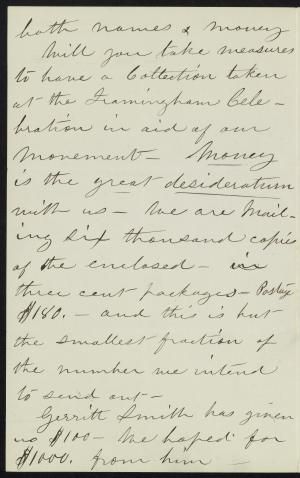 both names & money
Will you take measures
to have a Collection taken
at the Framingham Cele-
bration in aid of our
movement - Money
is the great desideratum
with us - We are Mail-
ing six thousand copies
of the enclosed - in
three cent packages - Postage
$180. - and this is but
the smallest fraction of
the number we intend
to send out -
Gerritt Smith has given
us $100 - We hoped for
$1000. from him -